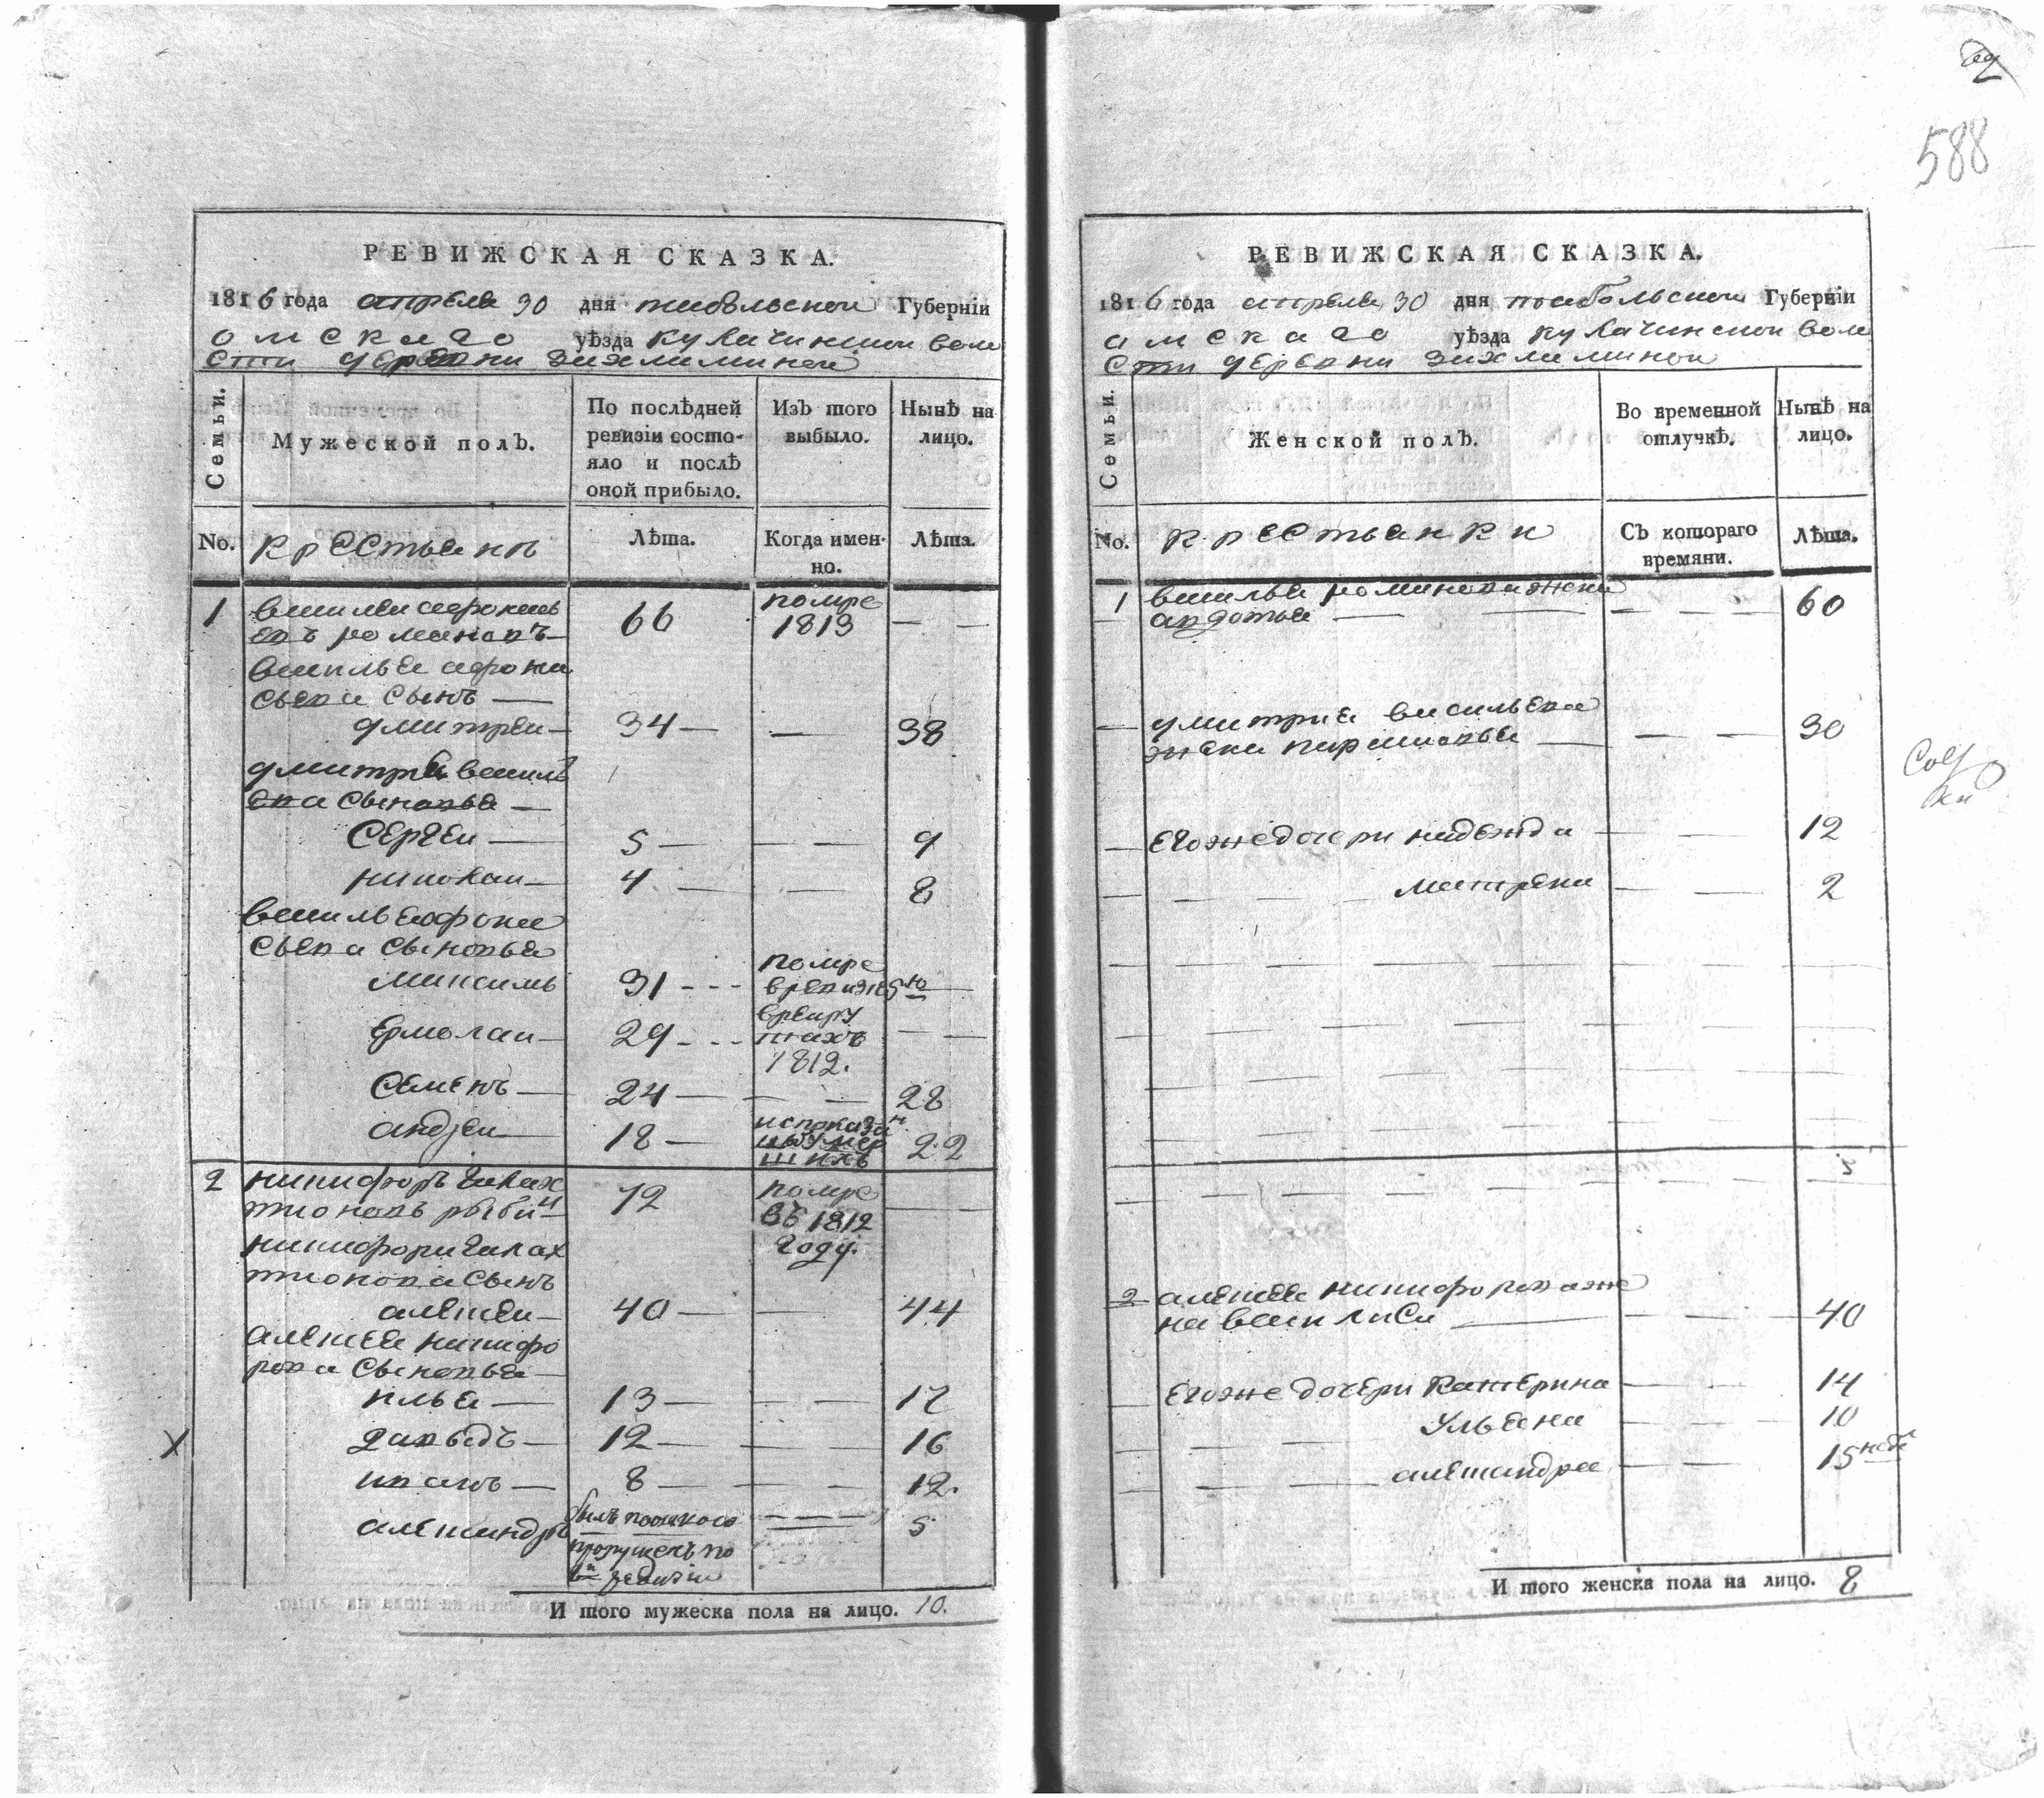 588
РЕВИЖСКАЯ СКАЗКА.
1816 года апреля 30 дня тобольской Губерніи
омскаго уѣзда кулачинской воло
сти деревни захламиной
Семьи.
Мужеской полъ.
По послѣдней ревизіи состо-
яло и послѣ
оной прибыло.
Изъ того
выбыло.
Нынѣ на
лицо.
No.
крестьянъ
Лѣта.
Когда имен-
но.
Лѣта.
1 василеи афонась 66 помре
евъ романовъ 1813
василья афона
сьева сынъ
дмитреи 34 — 38
дмитрия василь
ева сыновья
Сергеи 5 — 9
николаи 4 — 8
василья афона
сьева сыновья
максимъ 31 помре
Ермолаи 29 врекру
тахъ
1812.
Семенъ 24 — 28
андреи 18 — 22
2 никифоръ галах 72 помре
тионовъ въ 1812
году.
никифора галах
тионова сынъ
алексеи 40 — 44
алексея никифо
рова сыновья
илья 13 — 17
давыдъ 12 — 16
иванъ 8 — 12.
александръ былъ 5
пропущенъ по
ревизіи
И того мужеска пола на лицо. 10.
РЕВИЖСКАЯ СКАЗКА.
1816 года апреля 30 дня тобольской Губерніи
омскаго уѣзда кулачинской воло
сти деревни захламиной
Семьи.
Женской полъ.
Во временной
отлучкѣ.
Нынѣ на
лицо.
No.
крестьянки
Съ котораго
времяни.
Лѣта.
1 василья романова жена
авдотья 60
дмитрия васильева
жена 30
Егоже дочери надежда 12
матрена 2
2 алексея никифорова же
на василиса 40
Егоже дочери Катерина 14
Ульяна 10
александра 15 нед
И того женска пола на лицо. 8